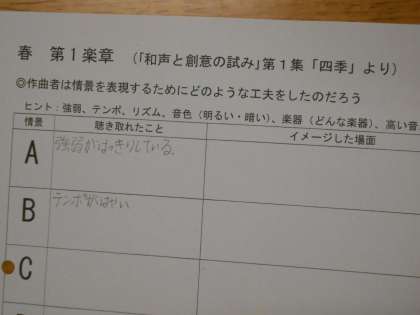 春 第１楽章 （「和声と創意の試み」第１集「四季」より）
◎作曲者は情景を表現するためにどのような工夫をしたのだろう
ヒント：強弱、テンポ、リズム、音色（明るい・暗い）、楽器（どんな楽器）、高い音
情景 聴き取れたこと イメージした場面
A 強弱がはっきりしている。
B テンポがはやい
C